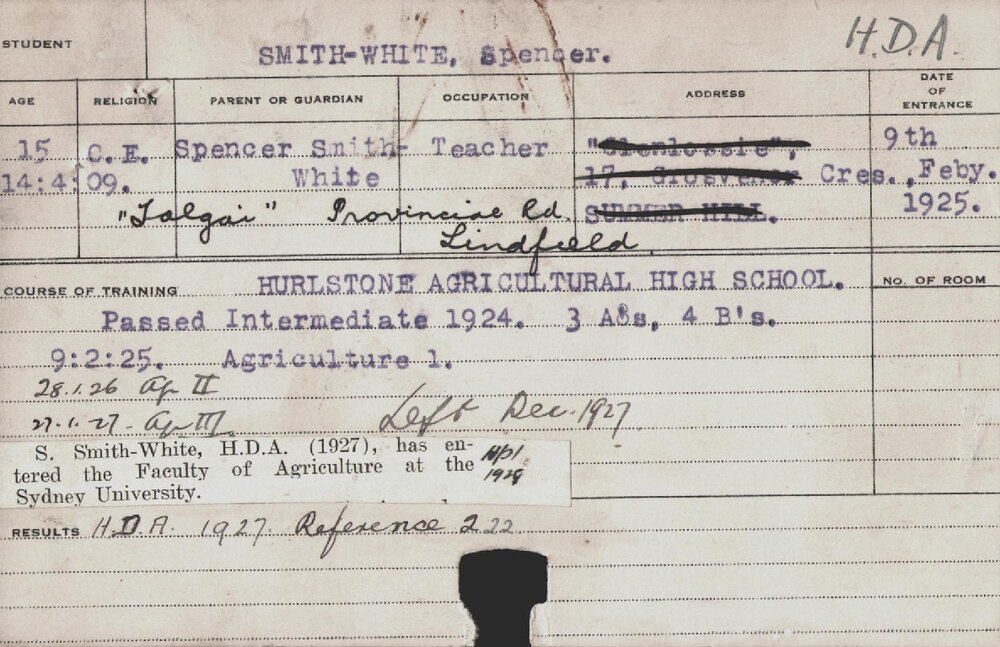 STUDENT
SMITH-WHITE, Spencer.
H.D.A.
AGE RELIGION PARENT OR GUARDIAN OCCUPATION ADDRESS DATE OF ENTRANCE
15 C.E. Spencer Smith- Teacher "Glenlossie", 9th
14:4:09. White 17, Grosvenor Cres., Feby.
"Talgai" Provincial Rd. SUMMER HILL. 1925.
Lindfield
COURSE OF TRAINING HURLSTONE AGRICULTURAL HIGH SCHOOL. NO. OF ROOM
Passed Intermediate 1924. 3 A's, 4 B's.
9:2:25. Agriculture 1.
28.1.26 Ag II
27.1.27 - Ag III Left Dec. 1927
S. Smith-White, H.D.A. (1927), has en-
tered the Faculty of Agriculture at the
Sydney University.
RESULTS H.D.A. 1927. Reference 222